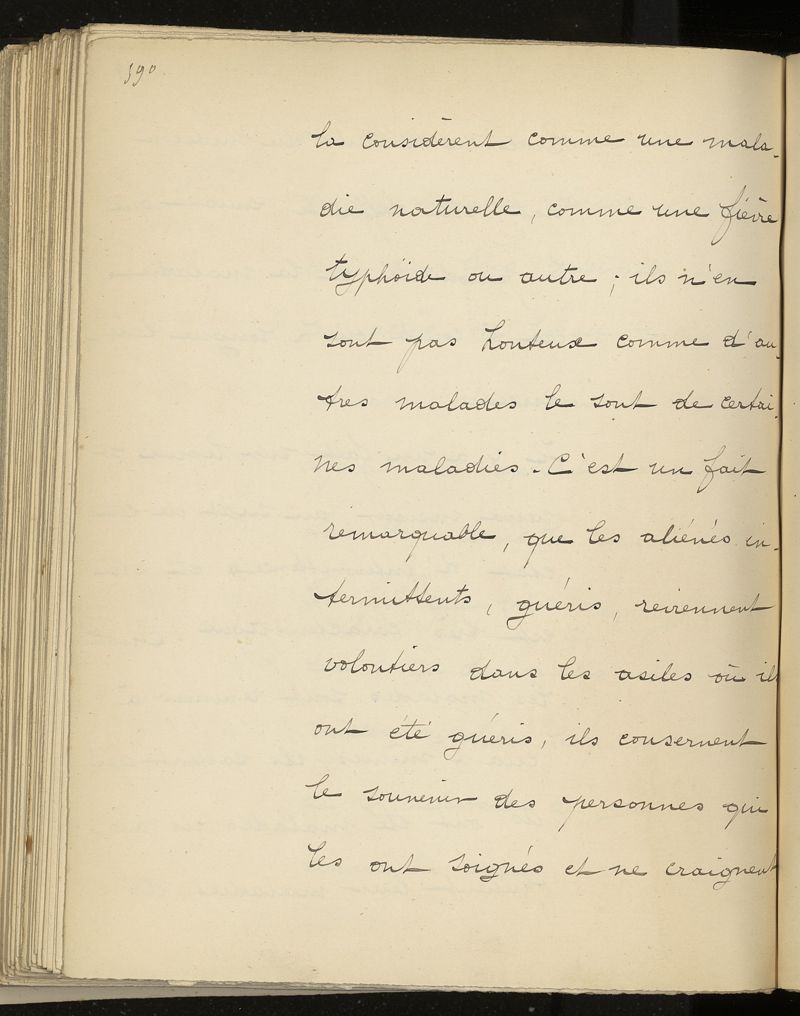 390
la considèrent comme une mala-
die naturelle, comme une fièvre
typhöide ou autre ; ils n'en
sont pas honteux comme d'au-
tres malades le sont de certai-
nes maladies. C'est un fait
remarquable, que les aliénés in-
termittents, guéris, reviennent
volontiers dans les asiles où ils
ont été guéris, ils conservent
le souvenir des personnes qui
les ont soignés et ne craignent